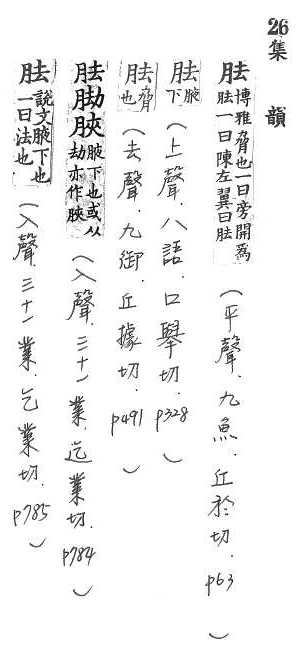 26集韻
胠博雅脅也一曰旁開為胠一曰陳左翼曰胠(平聲.九魚.丘於切.p63)
胠腋下(上聲.八語.口舉切.p328)
胠脅也(去聲.九御.丘據切.p491)
胠胉胠腋下也或从劫亦作胠(入聲.三十一業.迄業切.p784)
胠說文腋下也一曰法也(入聲.三十一業.乞業切.p785)